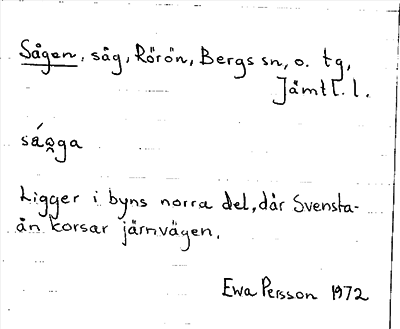 Sågen, såg, Rörön, Bergs sn, o. tg,
Jämtl. l.
Ligger i byns norra del, där Svensta-
ån korsar järnvägen.
Ewa Persson 1972